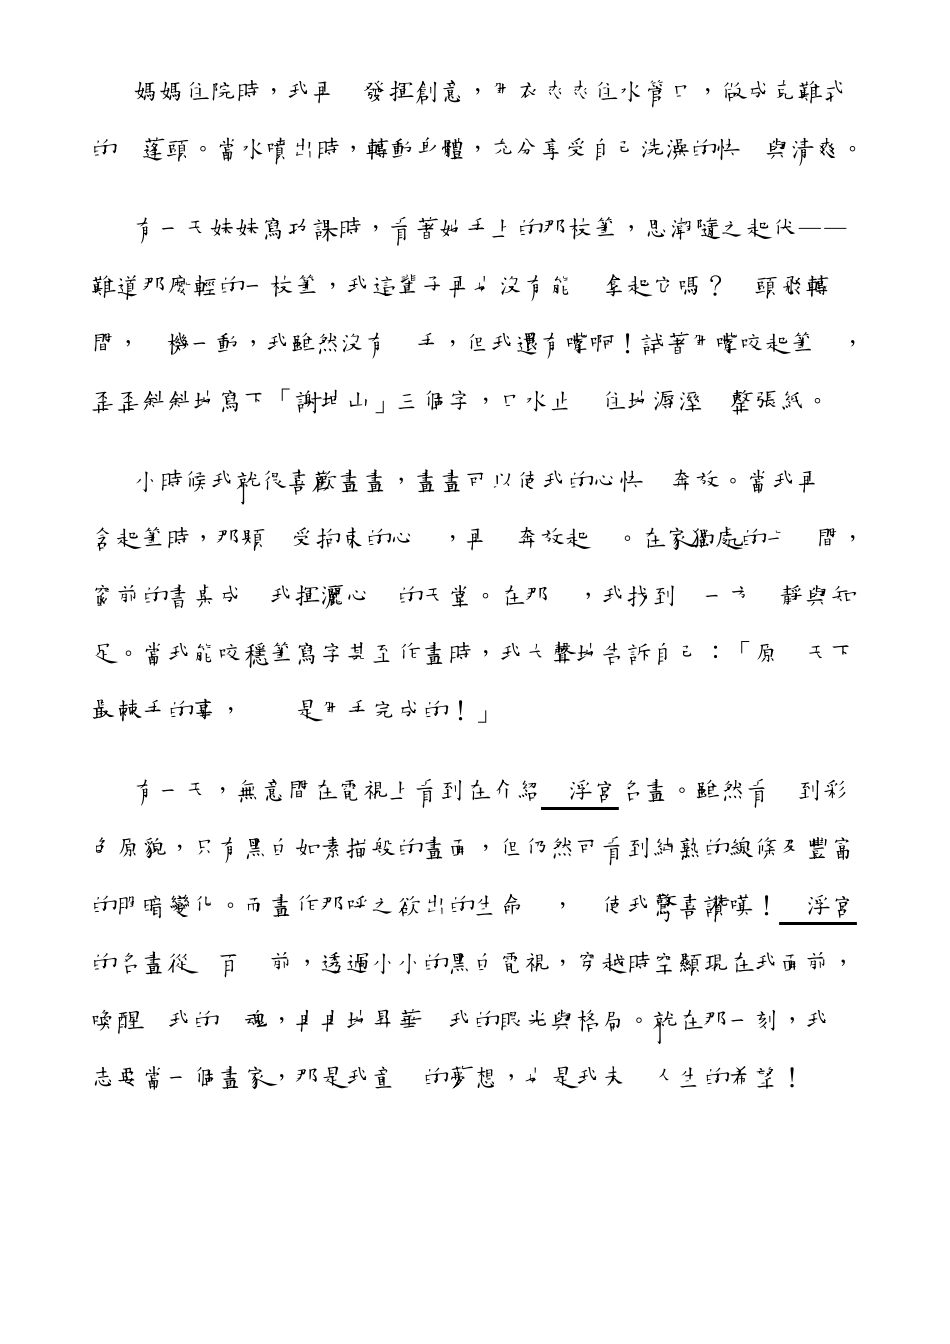 媽媽住院時，我再 發揮創意，用衣夾夾住水管口，做成克難式
的 蓬頭。當水噴出時，轉動身體，充分享受自己洗澡的快 與清爽。
有一天妹妹寫功課時，看著她手上的那枝筆，思潮隨之起伏——
難道那麼輕的一枝筆，我這輩子再也沒有能 拿起它嗎？ 頭飛轉
間， 機一動，我雖然沒有 手，但我還有嘴啊！試著用嘴咬起筆 ，
歪歪斜斜地寫下「謝坤山」三個字，口水止 住地滴溼 整張紙。
小時候我就很喜歡畫畫，畫畫可以使我的心快 奔放。當我再
含起筆時，那顆 受拘束的心 ，再 奔放起 。在家獨處的 間，
窗前的書桌成 我揮灑心 的天堂。在那 ，我找到 一方 靜與知
足。當我能咬穩筆寫字甚至作畫時，我大聲地告訴自己：「原 天下
最棘手的事， 是用手完成的！」
有一天，無意間在電視上看到在介紹 浮宮名畫。雖然看 到彩
色原貌，只有黑白如素描般的畫面，但仍然可看到純熟的線條及豐富
的明暗變化。而畫作那呼之欲出的生命 ， 使我驚喜讚嘆！ 浮宮
的名畫從 百 前，透過小小的黑白電視，穿越時空顯現在我面前，
喚醒 我的 魂，具具地昇華 我的眼光與格局。就在那一刻，我
志要當一個畫家，那是我童 的夢想，也是我未 人生的希望！